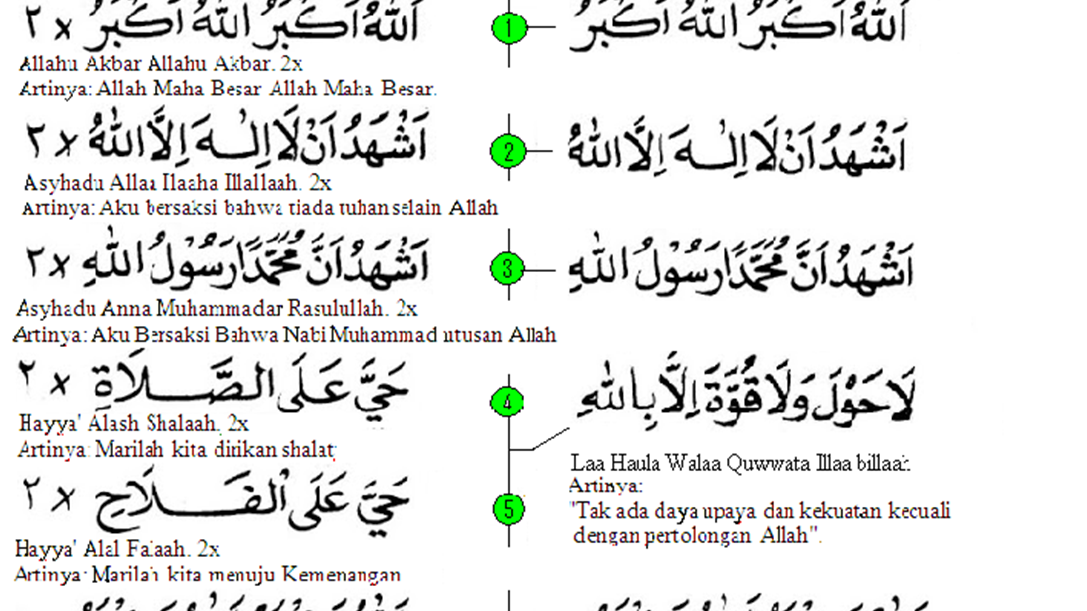 اَللهُ اَكْبَرُ اَللهُ اَكْبَرُ x ٢
Allahu Akbar Allahu Akbar. 2x
Artinya: Allah Maha Besar Allah Maha Besar.
1
اَللهُ اَكْبَرُ اَللهُ اَكْبَرُ
اَشْهَدُ اَنْ لَا اِلٰـهَ اِلَّا اللهُ x ٢
Asyhadu Allaa Ilaaha Illallaah. 2x
Artinya: Aku bersaksi bahwa tiada tuhan selain Allah
2
اَشْهَدُ اَنْ لَا اِلٰـهَ اِلَّا اللهُ
اَشْهَدُ اَنَّ مُحَمَّدًا رَسُوْلُ اللهِ x ٢
Asyhadu Anna Muhammadar Rasulullah. 2x
Artinya: Aku Bersaksi Bahwa Nabi Muhammad utusan Allah
3
اَشْهَدُ اَنَّ مُحَمَّدًا رَسُوْلُ اللهِ
حَيَّ عَلَى الصَّـــلَاةِ x ٢
Hayya' Alash Shalaah. 2x
Artinya: Marilah kita dirikan shalat
4
حَيَّ عَلَى الْفَـــلَاحِ x ٢
Hayya' Alal Falaah. 2x
Artinya: Marilah kita menuju Kemenangan
5
لَا حَوْلَ وَلَا قُوَّةَ اِلَّا بِاللهِ
Laa Haula Walaa Quwwata Illaa billaah
Artinya:
"Tak ada daya upaya dan kekuatan kecuali
dengan pertolongan Allah".